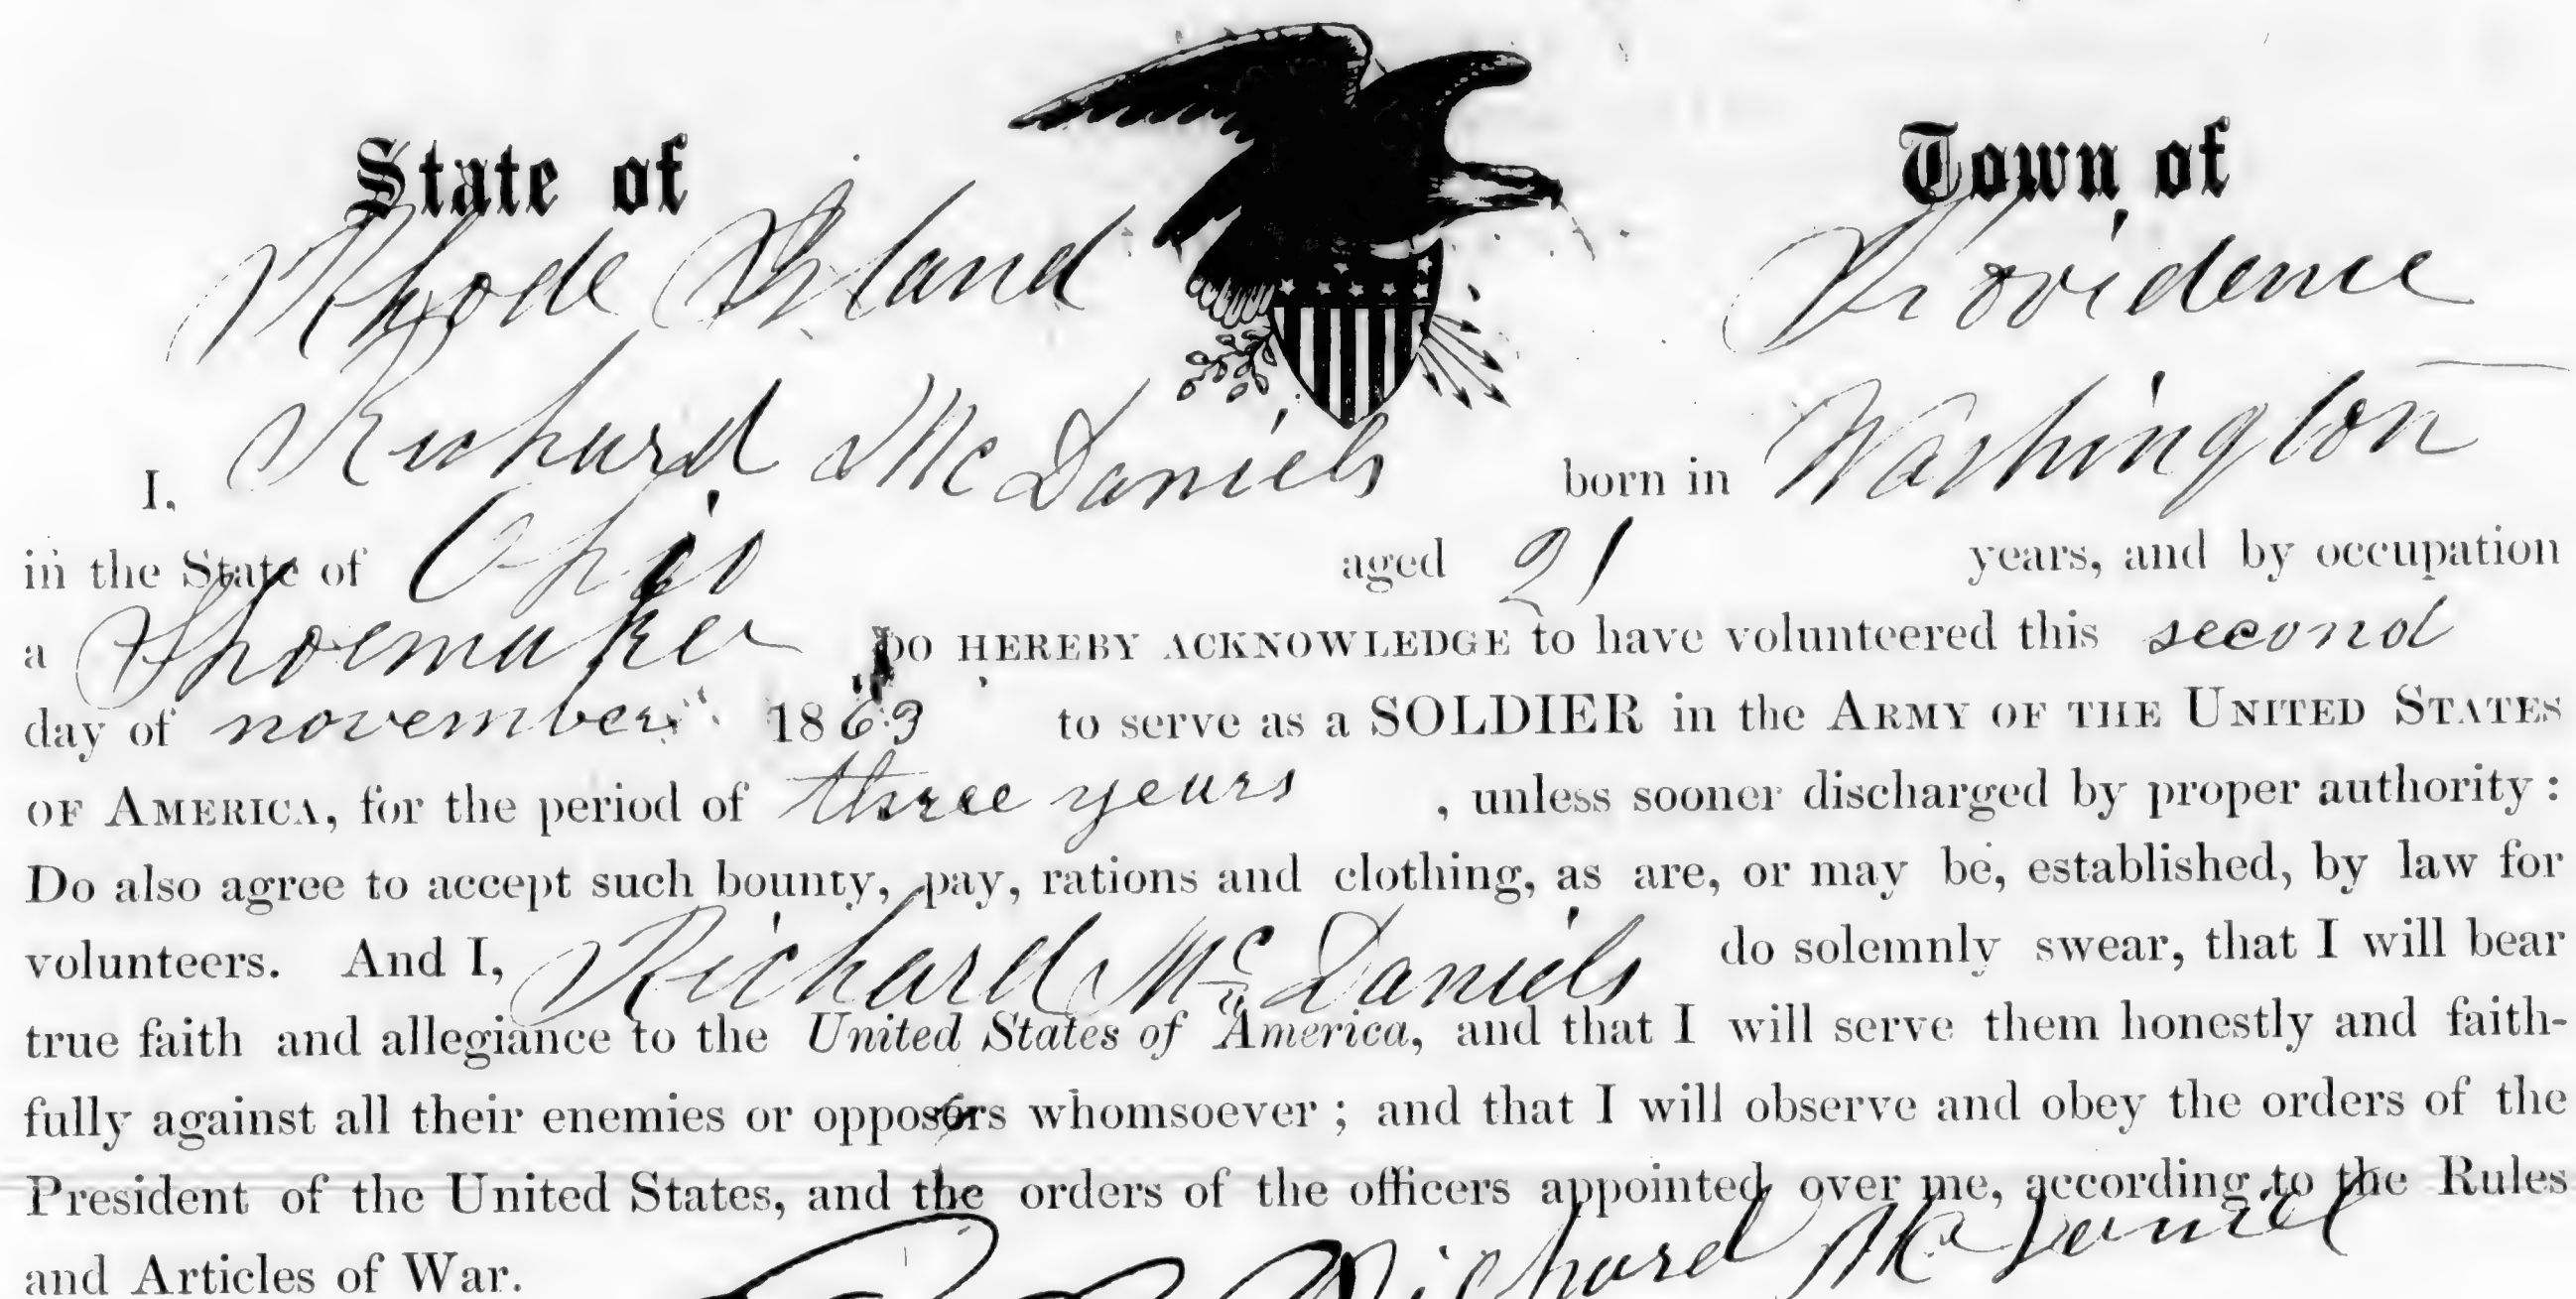 State of Town of
Rhode Island Providence
I, Richard McDaniels born in Washington
in the State of Ohio aged 21 years, and by occupation
a Shoemaker DO HEREBY ACKNOWLEDGE to have volunteered this second
day of november 1863 to serve as a SOLDIER in the ARMY OF THE UNITED STATES
OF AMERICA, for the period of three years , unless sooner discharged by proper authority :
Do also agree to accept such bounty, pay, rations and clothing, as are, or may be, established, by law for
volunteers. And I, Richard Mc Daniels do solemnly swear, that I will bear
true faith and allegiance to the United States of America, and that I will serve them honestly and faith-
fully against all their enemies or opposers whomsoever ; and that I will observe and obey the orders of the
President of the United States, and the orders of the officers appointed over me, according to the Rules
and Articles of War.
Richard McDaniel